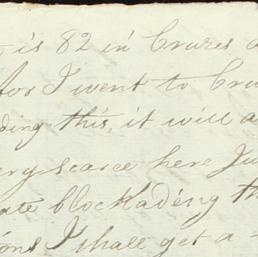 is 82 in Cruzes a
for I went to Cru
ding this, it will a
ery scarce here Ju
ate blockading th
ions I shall get a